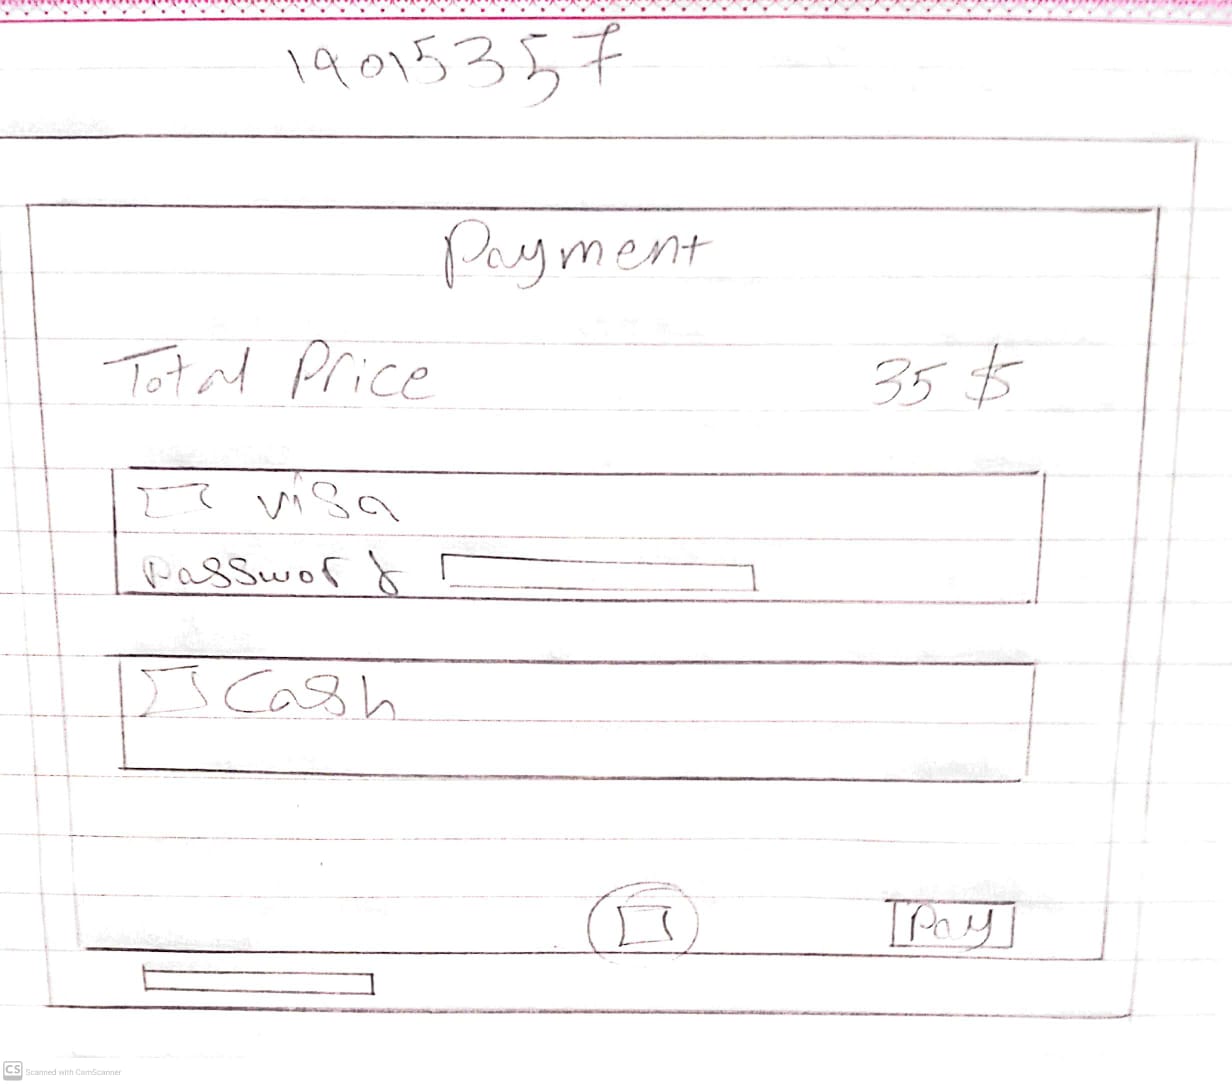 19015357
Payment
Total Price 35 $
visa
Password
Cash
Pay
CS Scanned with CamScanner